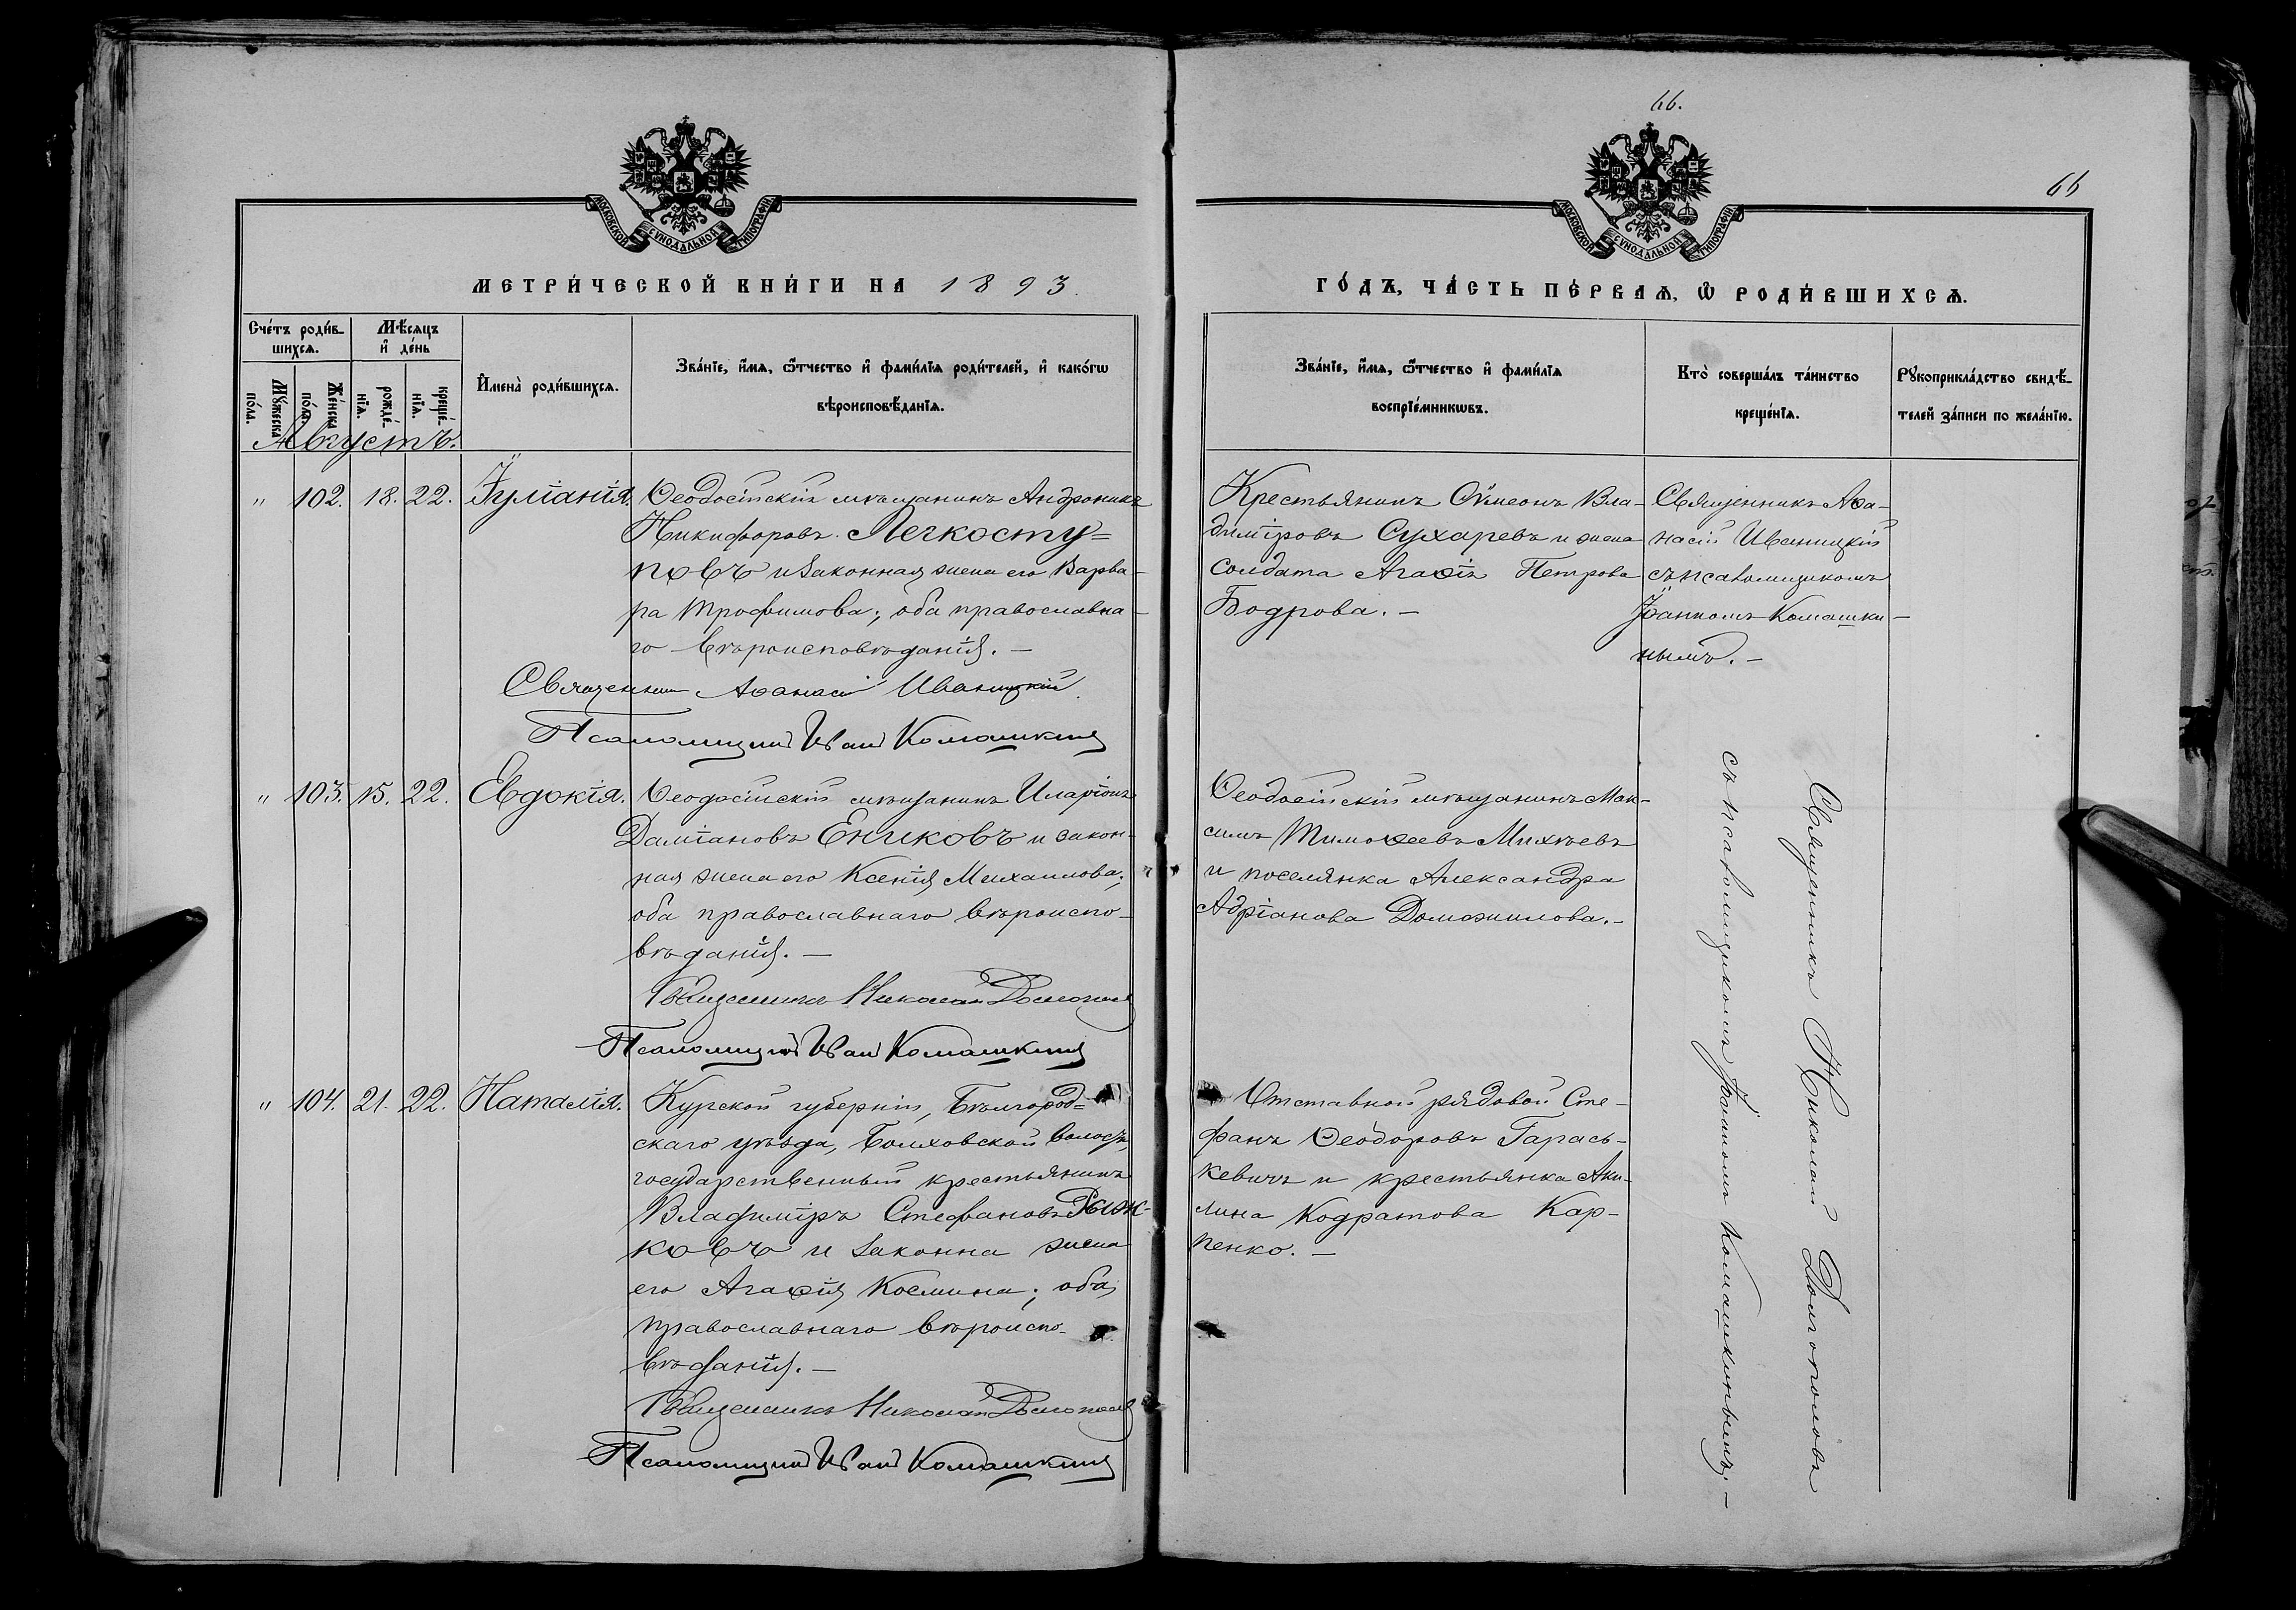 66.
66
МОСКОВСКОЙ СѴНОДАЛЬНОЙ ТИПОГРАФІИ
МОСКОВСКОЙ СѴНОДАЛЬНОЙ ТИПОГРАФІИ
МЕТРИ́ЧЕСКОЙ КНИ́ГИ НА 1893.
ГО́ДЪ, ЧА́СТЬ ПЕ́РВАѦ, Ѡ҆ РОДИ́ВШИХСѦ.
Сче́тъ роди́в-
шихсѧ.
Мѣ́сѧцъ
и҆ де́нь
Мꙋ́жеска
по́ла.
Же́нска
по́ла.
рожде́-
нїѧ.
креще́-
нїѧ.
И҆мена̀ роди́вшихсѧ.
Зва́нїе, и҆́мѧ, ѻ҆́тчество и҆ фами́лїѧ роди́телей, и҆ како́гѡ
вѣроисповѣ́данїѧ.
Зва́нїе, и҆́мѧ, ѻ҆́тчество и҆ фами́лїѧ
воспрїе́мникѡвъ.
Кто̀ соверша́лъ та́инство
креще́нїѧ.
Рꙋкоприкла́дство свидѣ́-
телей за́писи по жела́нїю.
Августъ.
" 102. 18. 22. Іуліанія.
Ѳеодосійскій мѣщанинъ Андроникъ
Никифоровъ Легкосту=
повъ и законная жена его Варва-
ра Трофимова; оба православна-
го вѣроисповѣданія. —
Священникъ Аѳанасій Иваницкій
Псаломщикъ Иванъ Комашкинъ
Крестьянинъ Сѵмеонъ Вла-
диміровъ Сухаревъ и жена
солдата Агаѳія Петрова
Бодрова. —
Священникъ Аѳа-
насій Иваницкій
съ псаломщикомъ
Іоанномъ Комашки-
нымъ. —
" 103. 15. 22. Евдокія.
Ѳеодосійскій мѣщанинъ Иларіонъ
Даміановъ Ениковъ и закон-
ная жена его Ксенія Михаилова;
оба православнаго вѣроиспо-
вѣданія. —
Священникъ Николай Долгополовъ
Псаломщикъ Иванъ Комашкинъ
Ѳеодосійскій мѣщанинъ Мак-
симъ Тимоѳеевъ Михѣевъ
и поселянка Александра
Адріанова Доможилова. —
Священникъ Николай Долгополовъ
съ псаломщикомъ Іоанномъ Комашкинымъ. —
" 104. 21. 22. Наталія.
Курской губерніи, Бѣлгород=
скаго уѣзда, Болховской волости,
государственный крестьянинъ
Владиміръ Стефановъ Рыж-
ковъ и законна жена
его Агаѳія Космина; оба
православнаго вѣроиспо-
вѣданія. —
Священникъ Николай Долгополовъ
Псаломщикъ Иванъ Комашкинъ
Отставной рядовой Сте-
фанъ Ѳеодоровъ Гарась-
кевичъ и крестьянка Аки-
лина Кодратова Кар-
пенко. —